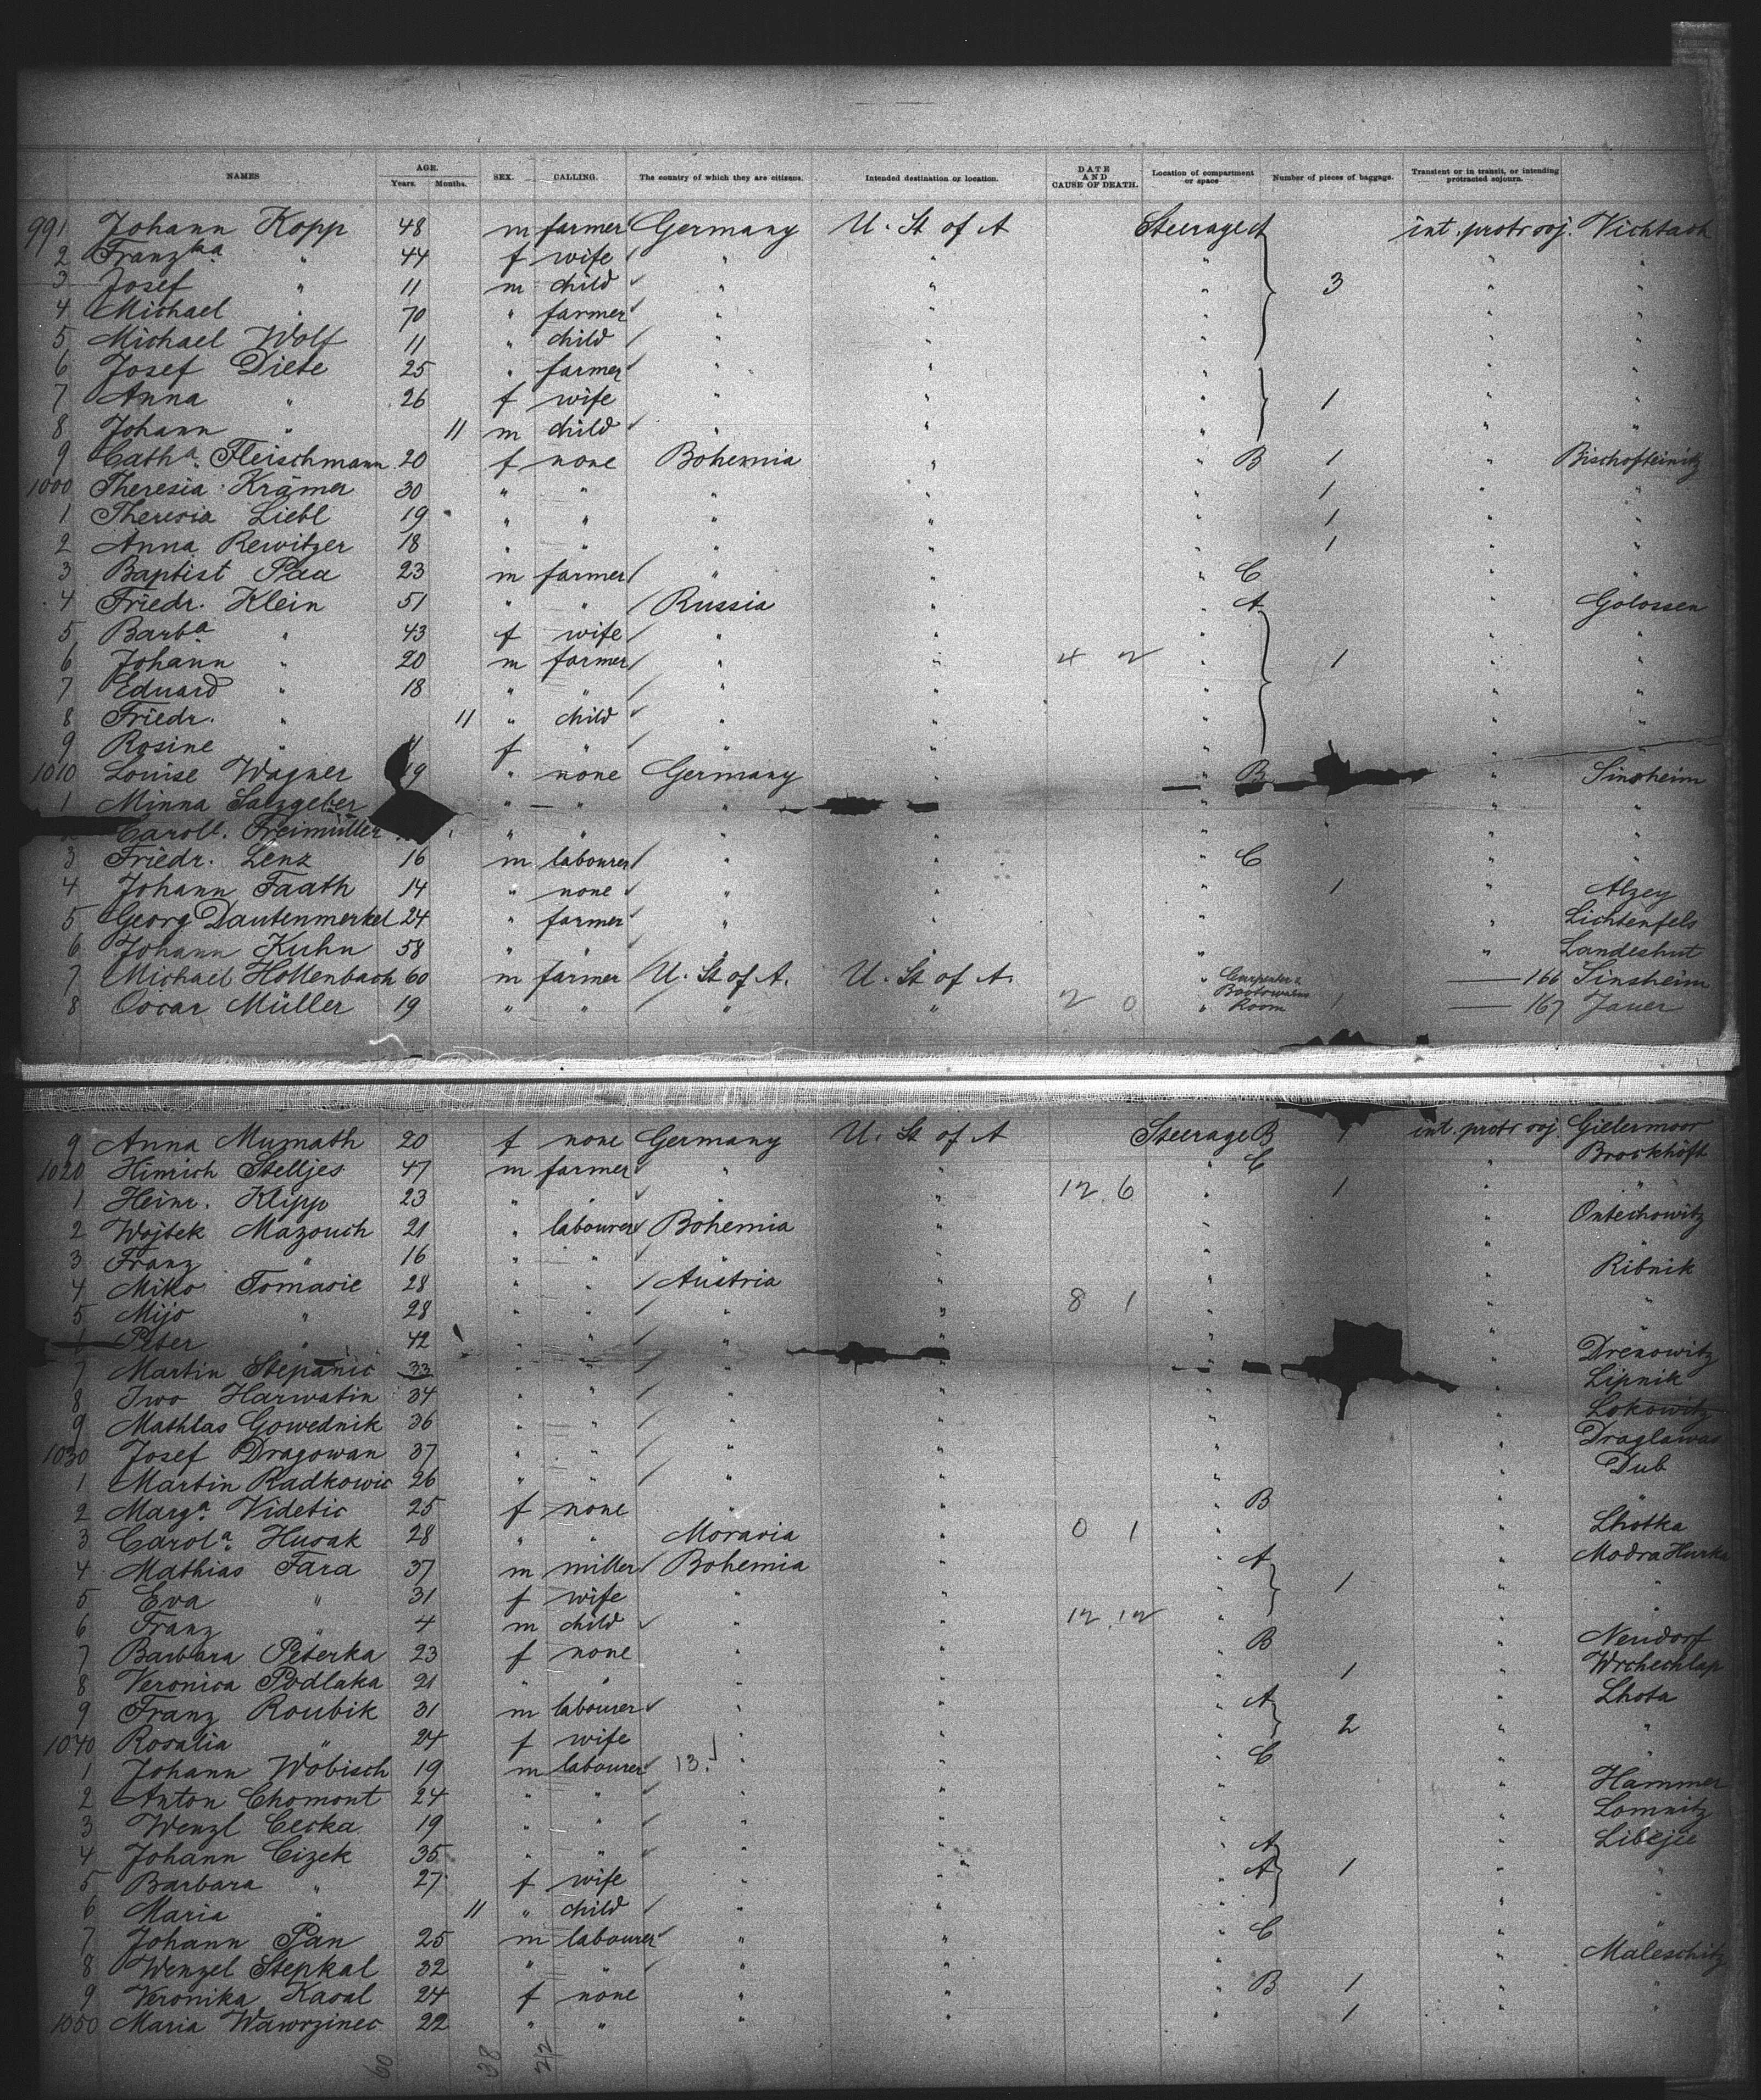 NAMES AGE. Years. Months. SEX. CALLING. The country of which they are citizens. Intended destination or location. DATE AND CAUSE OF DEATH. Location of compartment or space Number of pieces of baggage. Transient or in transit, or intending protracted sojourn.
991 Johann Kopp 48 m farmer Germany U. St of A Steerage A int. protr soj. Vichtach
2 Franzka " 44 f wife " " " " "
3 Josef " 11 m child " " " 3 " "
4 Michael " 70 " farmer " " " " "
5 Michael Wolf 11 " child " " " " "
6 Josef Diete 25 " farmer " " " " "
7 Anna " 26 f wife " " " 1 " "
8 Johann " 11 m child " " " " "
9 Catha. Fleischmann 20 f none Bohemia " " B 1 " Bischofteinitz
1000 Theresia Krämer 30 " " " " " 1 " "
1 Theresia Liebl 19 " " " " " 1 " "
2 Anna Rewitzer 18 " " " " " 1 " "
3 Baptist Paa 23 m farmer " " " C " "
4 Friedr. Klein 51 " " Russia " " A " Golossen
5 Barba " 43 f wife " " " " "
6 Johann " 20 m farmer " " 4 2 " 1 " "
7 Eduard " 18 " " " " " " "
8 Friedr. " 11 " child " " " " "
9 Rosine " f " " " " " "
1010 Louise Wagner 19 " none Germany " " B " Sinsheim
1 Minna Salzgeber " " " " " " "
Caroll. Freimüller " " " " " " "
3 Friedr. Lenz 16 m labourer " " " C " "
4 Johann Faath 14 " none " " " 1 " Alzey
5 Georg Dautenmerkel 24 " farmer " " " " Lichtenfels
6 Johann Kuhn 58 " " " " " " Landeshut
7 Michael Hollenbach 60 m farmer U. St of A. U. St of A. " Carpenter & Bootswains Room 166 Sinsheim
8 Oscar Müller 19 " " " " 2 0 " 1 167 Jauer
9 Anna Muznath 20 f none Germany U. St of A Steerage B 1 int. protr soj. Gielermoor
1020 Hinrich Stelljes 47 m farmer " " " C " Brockhöft
1 Heinr. Klipp 23 " " " " 12 6 " 1 " "
2 Wojtek Mazouch 21 " labourer Bohemia " " " Ontechowitz
3 Franz " 16 " " " " " " "
4 Miko Tomasic 28 " " Austria " " " Ribnik
5 Mijo " 28 " " " " 8 1 " " "
6 Peter " 42 " " " " " " "
7 Martin Stepanic 33 " " " " " " Drenowitz
8 Iwo Harwatin 34 " " " " " " Lipnik
9 Mathias Gowednik 36 " " " " " " Lokowitz
1030 Josef Dragowan 37 " " " " " " Draglawas
1 Martin Radkowic 26 " " " " " " Dub
2 Marga. Videtic 25 f none " " " B " "
3 Carola. Husak 28 " " Moravia " 0 1 " " Lhotka
4 Mathias Fara 37 m miller Bohemia " " A " Modra Hurka
5 Eva " 31 f wife " " " 1 " "
6 Franz " 4 m child " " 12 12 " " "
7 Barbara Peterka 23 f none " " " B " Neudorf
8 Veronica Podlaka 21 " " " " " 1 " Wrchechlap
9 Franz Roubik 31 m labourer " " " A " Lhota
1040 Rosalia " 24 f wife " " " 2 " "
1 Johann Wobisch 19 m labourer 13. " " " C " "
2 Anton Chomont 24 " " " " " " Hammer
3 Wenzl Cecka 19 " " " " " " Lomnitz
4 Johann Cizek 35 " " " " " A " Libejic
5 Barbara " 27 f wife " " " A 1 " "
6 Maria " 11 " child " " " " "
7 Johann Pan 25 m labourer " " " C " "
8 Wenzel Stepkal 32 " " " " " " Maleschitz
9 Veronika Kasal 24 f none " " " B 1 " "
1050 Maria Wawrzinec 22 " " " " " 1 " "
60 38 22